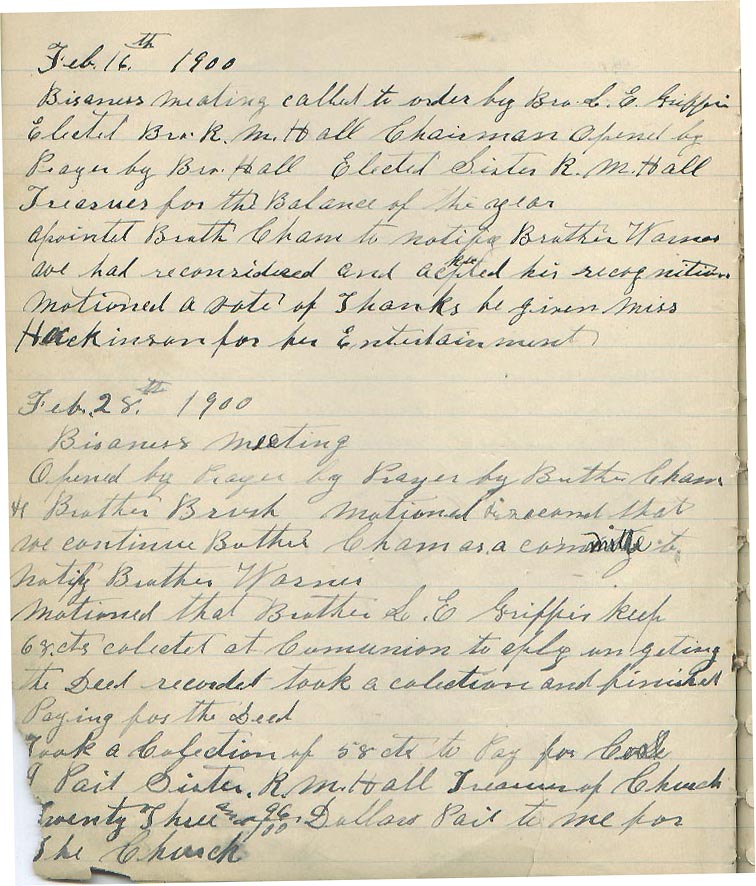 Feb. 16th 1900
Bisaness meating called to order by Bro. L. E. Griffin
Elected Bro. R. M. Hall Chairman Opened by
Prayer by Bro. Hall Elected Sister R. M. Hall
Treasuer for the Balance of the year
apointet Broth Cham to notify Brother Warner
we had reconsidered and acpted his recognition
Motioned a vote of Thanks be given Miss
Hackinson for her Entertainment
Feb. 28th 1900
Bisaness meeting
Opened by Prayer by Prayer by Buther Cham
& Brother Brush Motioned & second that
we continue Bother Cham as a committe to
notify Brother Warner
Motioned that Brother L. E Griffin keep
68 cts colectet at Comunion to aply on geting
the Deed recordet took a colection and finishet
Paying for the Deed
Took a Colection of 58 cts to Pay for Coal
I Pait Sister. R. M. Hall Treasuer of Church
Twenty Three and 96/100 Dollars Pait to me for
The Church